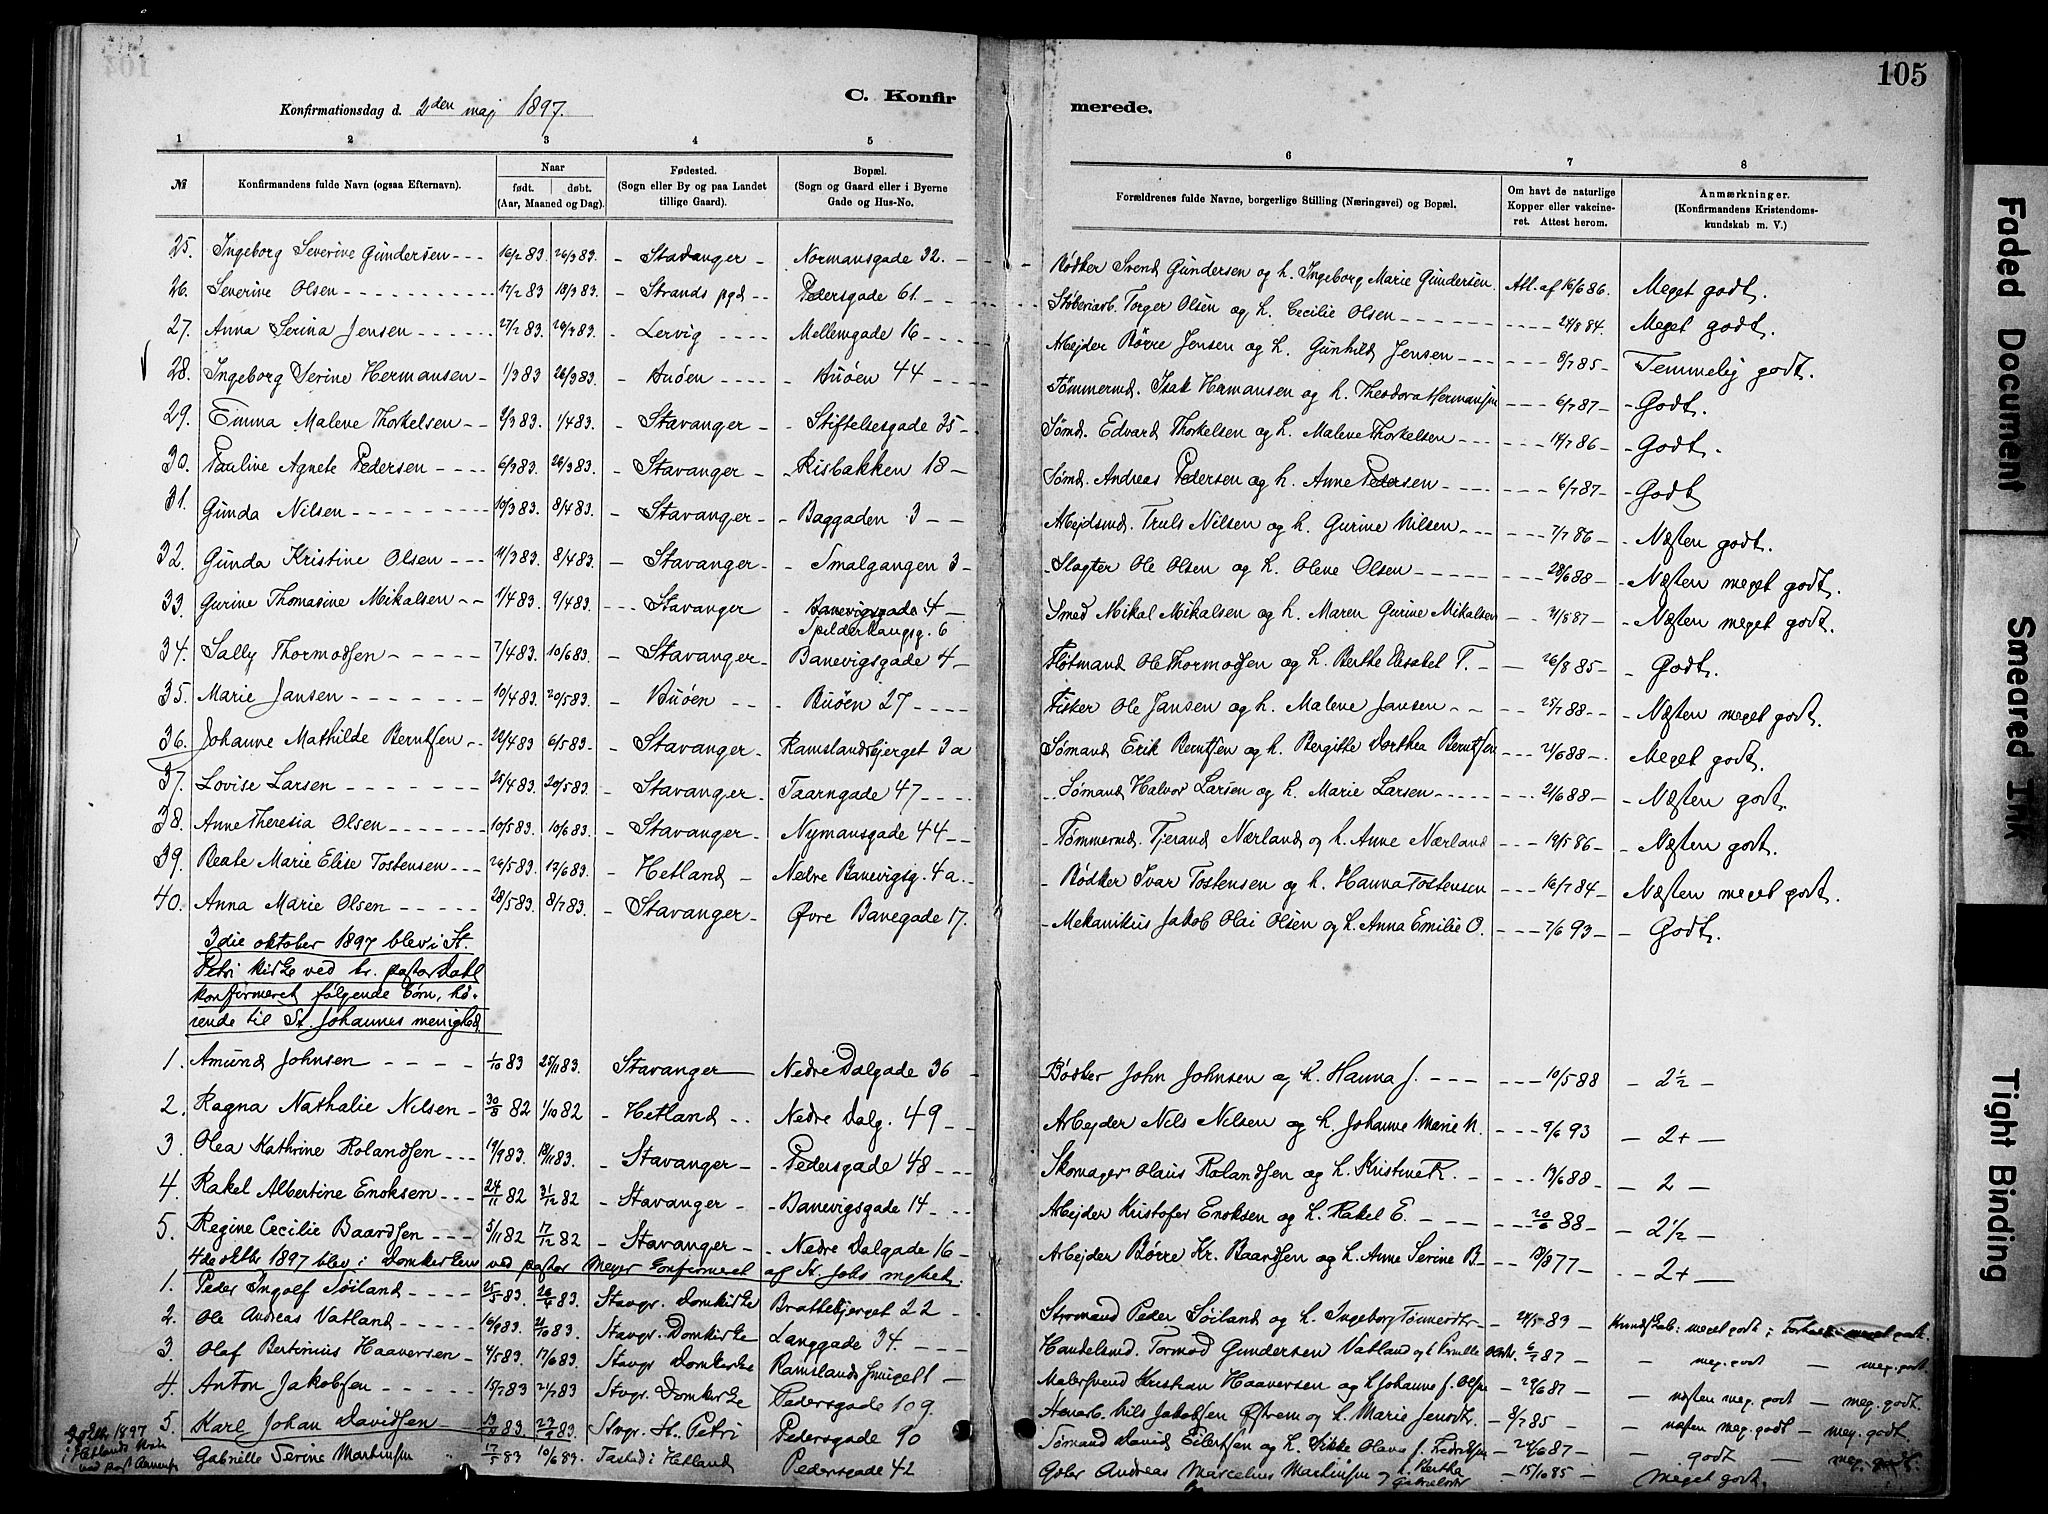 105
C. Konfirmerede.
Konfirmationsdag d. 2den maj 1897.
1 2 3 4 5 6 7 8
№ Konfirmandens fulde Navn (ogsaa Efternavn). Naar født. døbt. (Aar, Maaned og Dag). Fødested. (Sogn eller By og paa Landet tillige Gaard). Bopæl. (Sogn og Gaard eller i Byerne Gade og Hus-No. Forældrenes fulde Navne, borgerlige Stilling (Næringsvei) og Bopæl. Om havt de naturlige Kopper eller vakcineret. Attest herom. Anmærkninger. (Konfirmandens Kristendomskundskab m. V.)
25. Ingeborg Severine Gundersen 16/2 83 26/3 83. Stavanger Normansgade 32. Bødker Svend Gundersen og h. Ingeborg Marie Gundersen. Att. af 16/6 86. Meget godt.
26. Severine Olsen 17/2 83 18/3 83. Strands pgd. Pedersgade 61. Støberiarb. Torger Olsen og h. Cecilie Olsen 24/8 84. Meget godt.
27. Anna Serina Jensen 27/2 83. 29/3 83. Lervig Mellemgade 16 Arbejder Børre Jensen og h. Gunhild Jensen 8/7 85 Temmelig godt.
28. Ingeborg Serine Hermansen 1/3 83 26/3 83. Buøen Buøen 44 Tømmermd. Isak Hermansen og h. Theodora Hermansen 6/7 87 Godt.
29. Emma Malene Thorkelsen 2/3 83. 1/4 83. Stavanger Stiftelsesgade 35 Sømd. Edvard Thorkelsen og h. Malene Thorkelsen 14/7 86 Godt.
30. Pauline Agnete Pedersen 6/3 83 26/3 83. Stavanger Risbakken 18 Sømd. Andreas Pedersen og h. Anne Pedersen 6/7 87 Godt
31. Gunda Nilsen 10/3 83. 8/4 83. Stavanger Baggaden 3 Arbejdsmd. Truls Nilsen og h. Gurine Nilsen 7/7 86 Næsten godt.
32. Gunda Kristine Olsen 11/3 83. 8/4 83. Stavanger Smalgangen 3 Slagter Ole Olsen og h. Olene Olsen 28/6 88 Næsten meget godt.
33. Gurine Thomasine Mikalsen 1/4 83. 9/4 83. Stavanger Banevigsgade 4 Spilderhaugsg. 6 Smed Mikal Mikalsen og h. Maren Gurine Mikalsen 31/8 87 Næsten meget godt.
34. Sally Thormodsen 7/4 83. 10/6 83. Stavanger Banevigsgade 4 Flotmand Ole Thormodsen og h. Berthe Elisabet T. 26/8 85 Godt.
35. Marie Jansen 10/4 83. 20/5 83. Buøen Buøen 27 Fisker Ole Jansen og h. Malene Jansen 25/7 88 Næsten meget godt.
36. Johanne Mathilde Berntsen 22/4 83 6/5 83. Stavanger Ramslandsbjerget 3a Sømand Erik Berntsen og h. Bergitte Dorthea Berntsen 21/6 88 Meget godt.
37. Lovise Larsen 25/4 83. 20/5 83. Stavanger Taarngade 47 Sømand Halvor Larsen og h. Marie Larsen 21/6 88 Næsten godt.
38. Anne Theresia Olsen 10/5 83. 10/6 83. Stavanger Nymansgade 44 Tømmermd. Tjerand Nærland og h. Anne Nærland 19/5 86 Næsten godt.
39. Beate Marie Elise Tostensen 26/5 83. 17/6 83. Hetland Nedre Banevigsg. 4a. Bødker Ivar Tostensen og h. Hanna Tostensen 16/7 84 Næsten meget godt.
40. Anna Marie Olsen 28/5 83. 8/7 83. Stavanger Øvre Banegade 17. Mekanikus Jakob Olai Olsen og h. Anna Emilie O. 7/6 93 Godt.
3die oktober 1897 blev i St.
Petri kirke ved hr. pastor Dahl
konfirmeret følgende børn, hø-
rende til St. Johannes menighed.
1. Amund Johnsen 1/10 83 25/11 83. Stavanger Nedre Dalgade 36 Bødker John Johnsen og h. Hanna J. 10/5 88 2 1/2
2. Ragna Nathalie Nilsen 30/8 82 1/10 82 Hetland Nedre Dalg. 49 Arbejder Nils Nilsen og h. Johanne Marie N. 9/6 93 2+
3. Olea Kathrine Rolandsen 19/9 83. 18/11 83. Stavanger Pedersgade 48 Skomager Olaus Rolandsen og h. Kristine R. 13/6 88 2
4. Rakel Albertine Enoksen 24/11 82 31/12 82 Stavanger Banevigsgade 14 Arbejder Kristofer Enoksen og h. Rakel E. 20/6 88 2 1/2
5. Regine Cecilie Baardsen 5/11 82 17/12 82 Stavanger Nedre Dalgade 16 Arbejder Børre Kr. Baardsen og h. Anne Serine B. 18/8 77 2+
4de oktbr 1897 blev i Domkirken ved pastor Meyer konfirmeret af St. Johs mghet.
1. Peder Ingolf Søiland 25/3 83. 26/4 83. Stavgr. Domkirke Brattebjerget 22 Styrmand Peder Søiland og h. Ingeborg Tønnesdtr 24/5 83 Kundskab: meget godt; Forhold: meget godt.
2. Ole Andreas Vatland 16/9 83. 21/10 83. Stavgr. Domkirke Langgade 34. Handelsmd. Tormod Gundersen Vatland og h. Pernille 6/7 87 meg. godt — meg. godt
3. Olaf Bertinius Haaversen 4/5 83. 17/6 83. Stavgr Domkirke Ramslandsmuget 1 Malersvend Kristian Haaversen og h. Johanne f. Olsen 29/6 87 næsten meg. godt — meg. godt.
4. Anton Jakobsen 15/7 83 21/7 83 Stvgr. Domkirke Pedersgade 109. Nils Jakobsen Østrem og h. Marie Jensdt. 8/7 85 næsten meg. godt — meg. godt.
5. Karl Johan Davidsen 83. 83. Stvgr. St. Petri Pedersgade 90 Sømand David Eilertsen og h. Sikke Olava f. Fredriksen 24/6 87 godt — meg. godt.
oktb. 1897 i Hetlands kirke ved past.
Gabrielle Serine Martinsen 17/5 83 10/6 83. Tasted i Hetland Pedersgade 42 Andreas Marcelius Martinsen og h. Bertha Gabrielsdtr 15/10 85 Meget godt.
Faded Document
Smeared Ink
Tight Binding